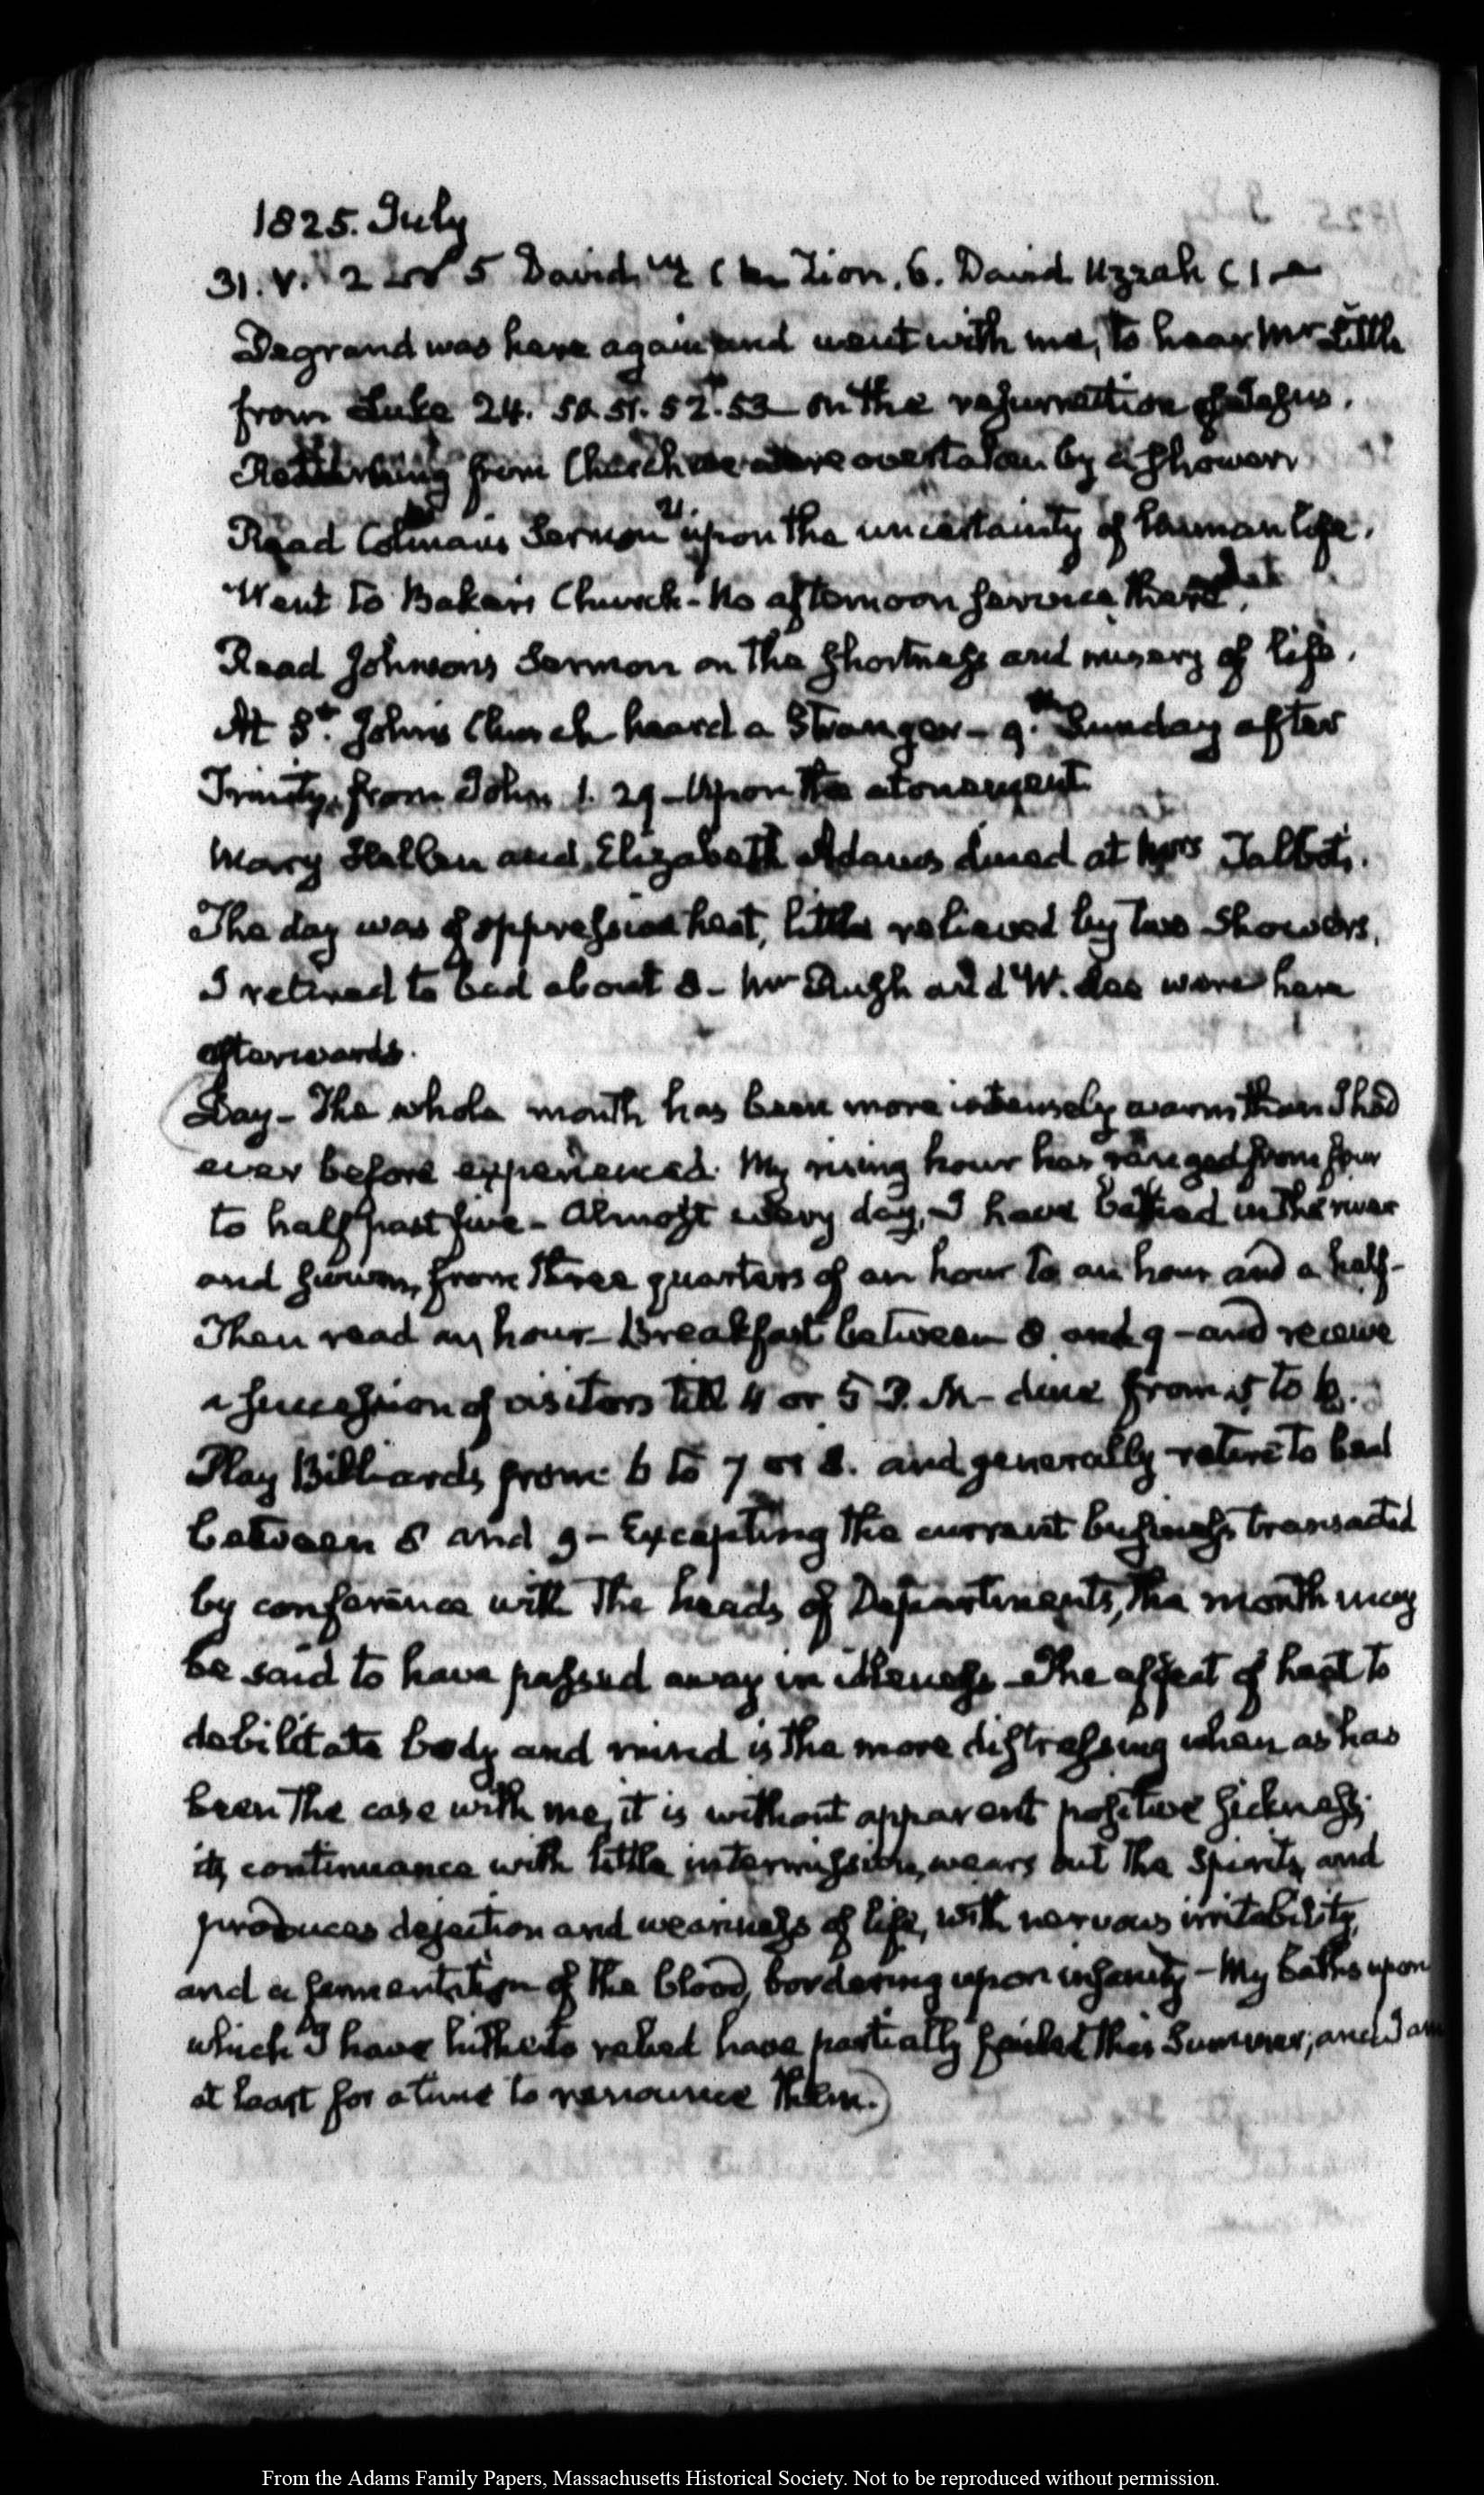 1825. July
31. V. 2 5 David Zion. 6. David Uzzah
Degrand was here again and went with me, to hear Mr Little
from Luke 24. 50. 51. 52. 53 on the resurrection of Jesus.
Returning from Church we were overtaken by a shower
Read Colman's Sermon 21. upon the uncertainty of human life.
Went to Baker's Church - No afternoon service there
Read Johnson's Sermon on the shortness and misery of life.
At St. John's Church heard a Stranger - 9th Sunday after
Trinity, from John 1. 29 - Upon the atonement
Mary Hellen and Elizabeth Adams dined at Mrs Talbot's.
The day was of oppressive heat, little relieved by two showers.
I retired to bed about 8 - Mr Pugh and W. Lee were here
afterwards.
Day - The whole month has been more intensely warm than I had
ever before experienced. My rising hour has ranged from four
to half past five - Almost every day, I have bathed in the river
and swum, from three quarters of an hour to an hour and a half -
Then read an hour - Breakfast between 8 and 9 - and receive
a succession of visitors till 4 or 5 P. M - dine from 5 to 6.
Play Billiards from 6 to 7 or 8. and generally retire to bed
between 8 and 9 - Excepting the current business transacted
by conference with the heads of Departments, the month may
be said to have passed away in idleness - The effect of heat to
debilitate body and mind is the more distressing when as has
been the case with me, it is without apparent positive sickness.
its continuance with little intermission, wears out the spirits, and
produces dejection and weariness of life, with nervous irritability,
and a fermentation of the blood, bordering upon insanity - My baths upon
which I have hitherto relied have partially failed this Summer; and I am
at least for a time to renounce them.)
From the Adams Family Papers, Massachusetts Historical Society. Not to be reproduced without permission.